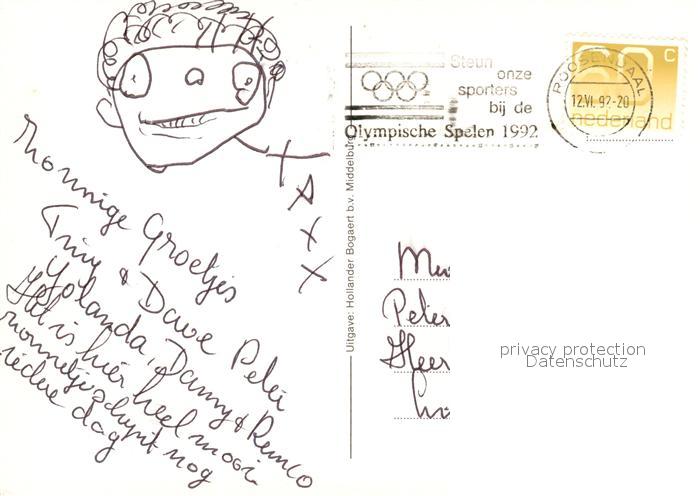 Zonnige Groetjes
Tiny & Dave Peter
Yolanda, Danny & Remco
Het is hier heel mooi.
zonnetje schynt nog
iedere dag
X A X X
Uitgave: Hollander Bogaert b.v. Middelburg
Steun
onze
sporters
bij de
Olympische Spelen 1992
ROOSENDAAL
12.VI.92-20
60 c
nederland
Peter
Heer
privacy protection
Datenschutz